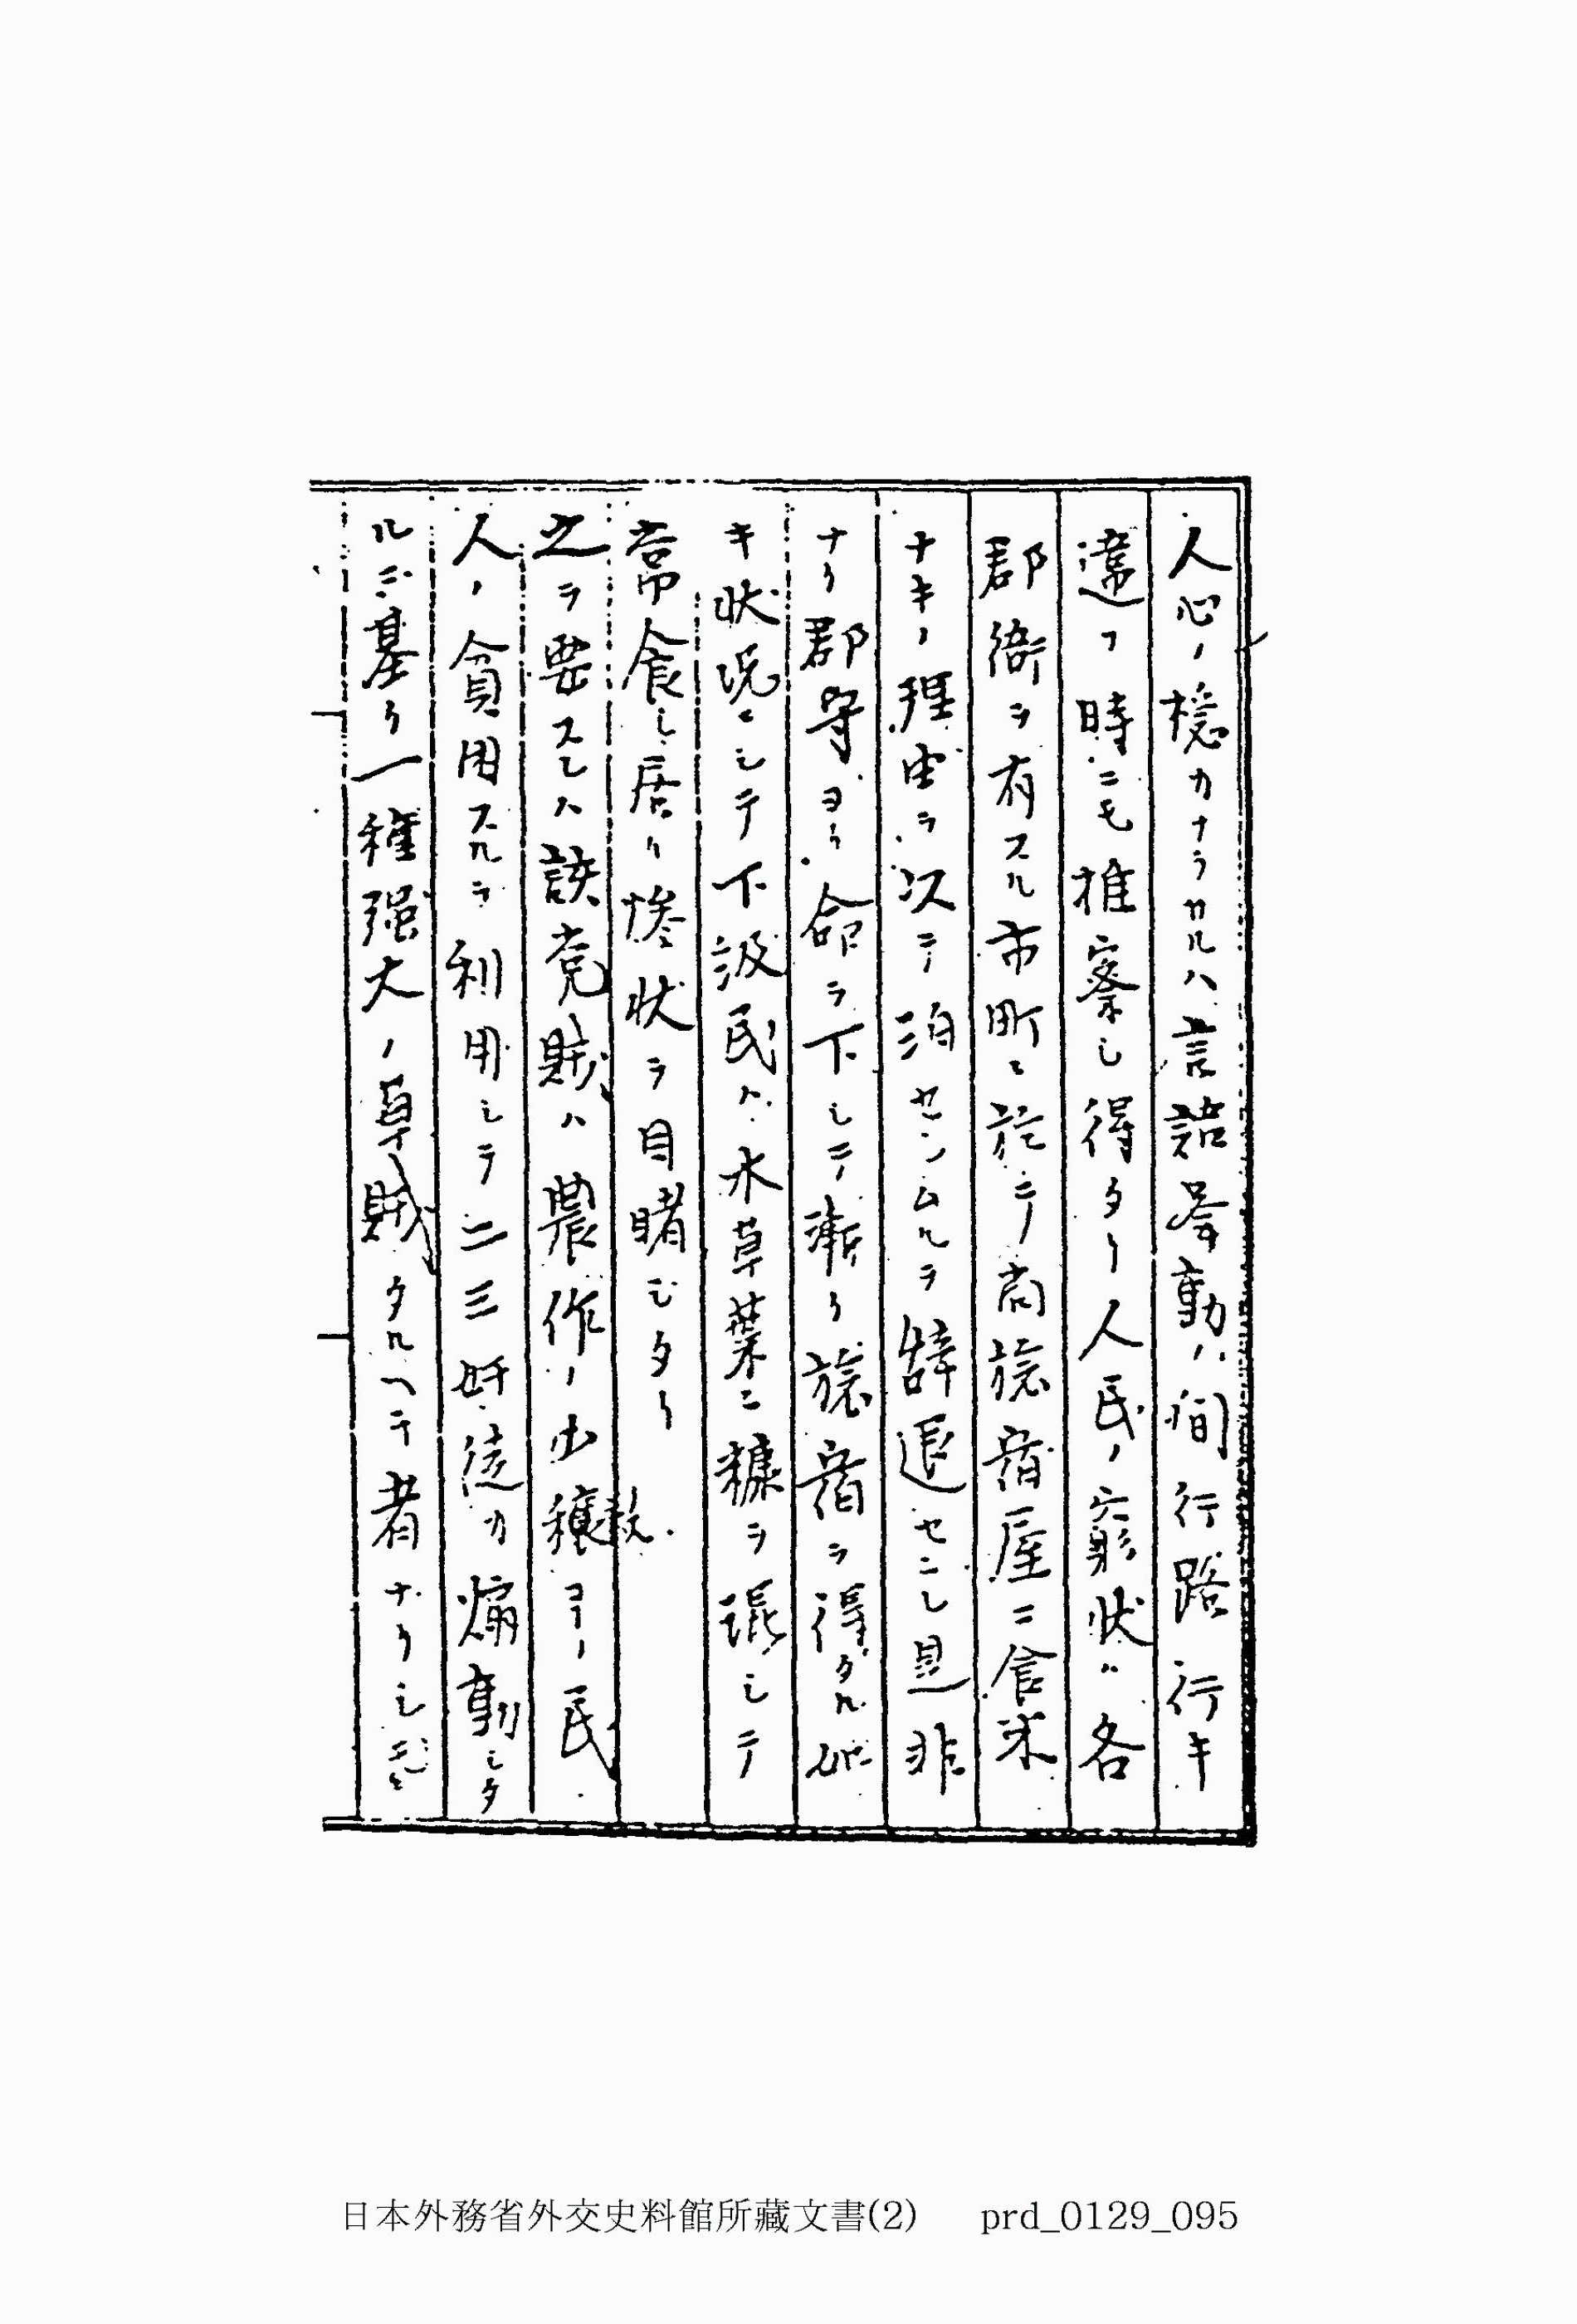 人心ノ穏カナラサルハ言語挙動ハ勿論行路行キ
違フ時ニモ推察シ得タリ人民ノ窮状ハ各
郡衙ヲ有スル市町ニ於テ尚旅宿屋ニ宿米
ナキノ理由ヲ以テ泊センムルヲ辞退セシ
ナリ郡守ヨリ命ヲ下シテ漸ク旅宿ヲ得タル如
キ状況ニシテ下級民ハ木草葉ニ糠ヲ混シテ
常食シ居リ惨状ヲ目睹シタリ
之ヲ要スレハ該党賊ハ農作ノ少穫ヨリ民
人ノ貧困スルヲ利用シテ二三奸徒カ煽動シタ
ルニ基クー種强大ノ草賊タルヘキ者ナリシモ
日本外務省外交史料館所藏文書(2) prd_0129_095